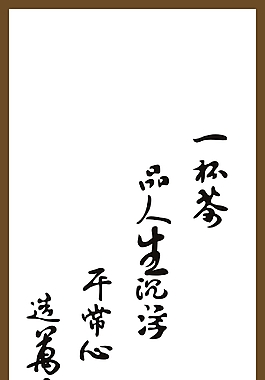 一杯茶
品人生沉浮
平常心
造萬